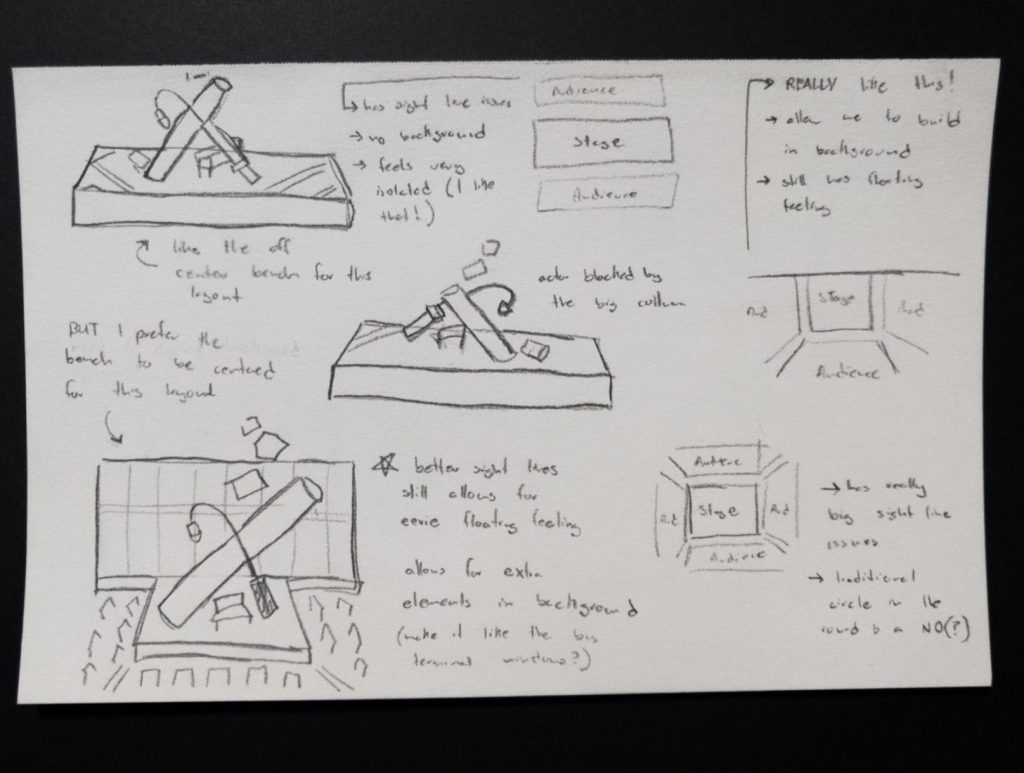 → has sight line issues
→ no background
→ feels very
isolated (I like
that!)
Audience
Stage
Audience
→ REALLY like this!
→ allow me to build
in background
→ still has floating
feeling
like the off
center bench for this
layout
actor blocked by
the big column
Aud
Stage
Aud
Audience
BUT I prefer the
bench to be centred
for this layout
☆ better sight lines
still allows for
eerie floating feeling
allows for extra
elements in background
(make it like the big
terminal windows?)
Audience
Aud
Stage
Aud
Audience
→ has really
big sight line
issues
→ traditional
circle in the
round is a NO(?)